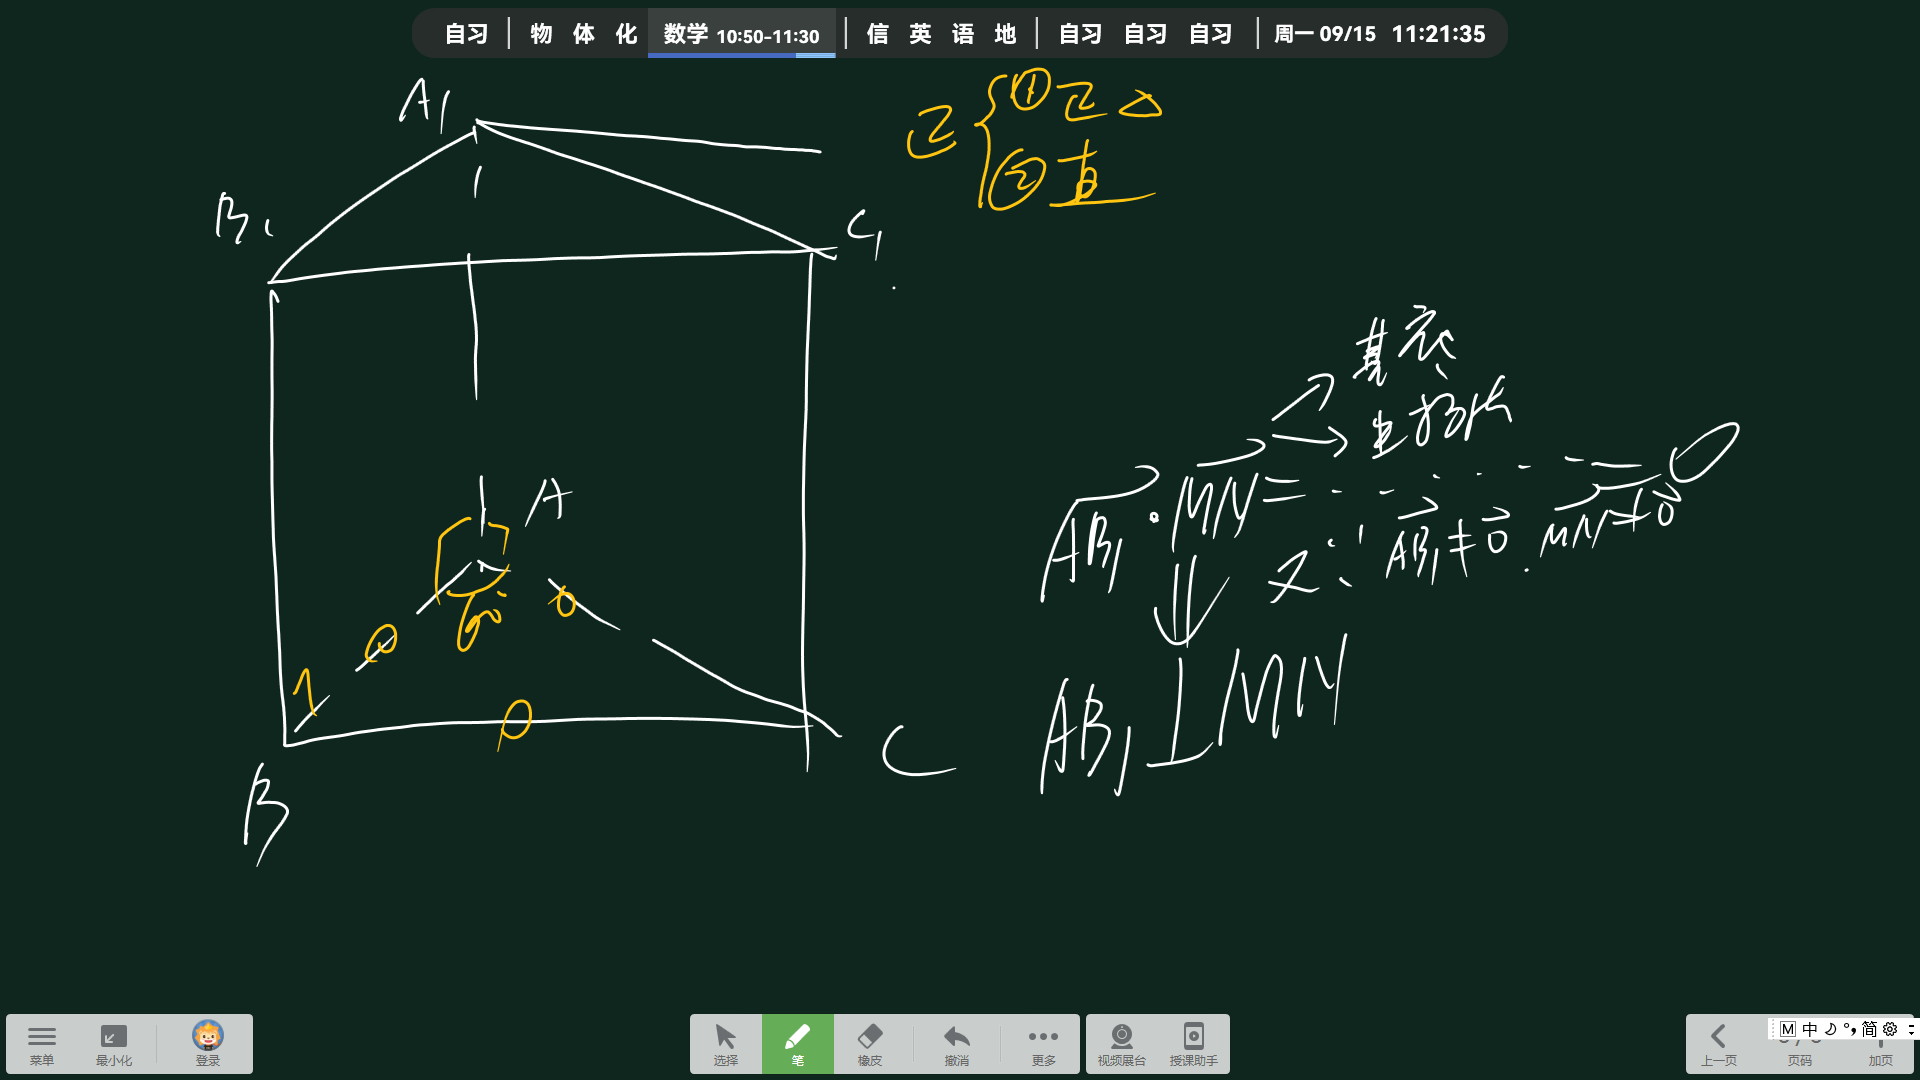 自习 | 物 体 化 数学 10:50-11:30 | 信 英 语 地 | 自习 自习 自习 | 周一 09/15 11:21:35
A₁
正 { ① 正 △
② 直
B₁
C₁
基底
坐标法
AB₁ · MN = ······ = 0
又∵ AB₁ ≠ 0 . MN ≠ 0
A
60°
1
AB₁ ⊥ MN
B
C
菜单 最小化 登录 选择 笔 橡皮 撤消 更多 视频展台 授课助手 上一页 页码 加页
M 中 简